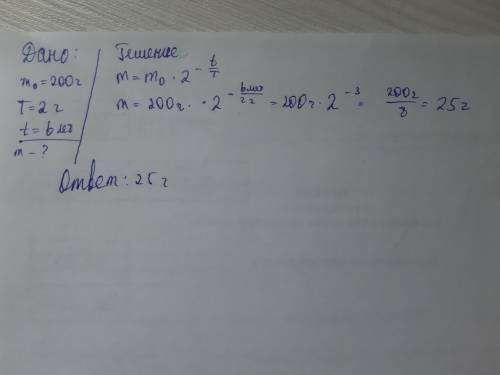 Дано:
m₀ = 200г
T = 2 г
t = 6 лет
m - ?
Решение
m = m₀ · 2^(-t/T)
m = 200г. · 2^(-6 лет/2 г) = 200г · 2^(-3) = 200г/8 = 25 г
Ответ: 25 г